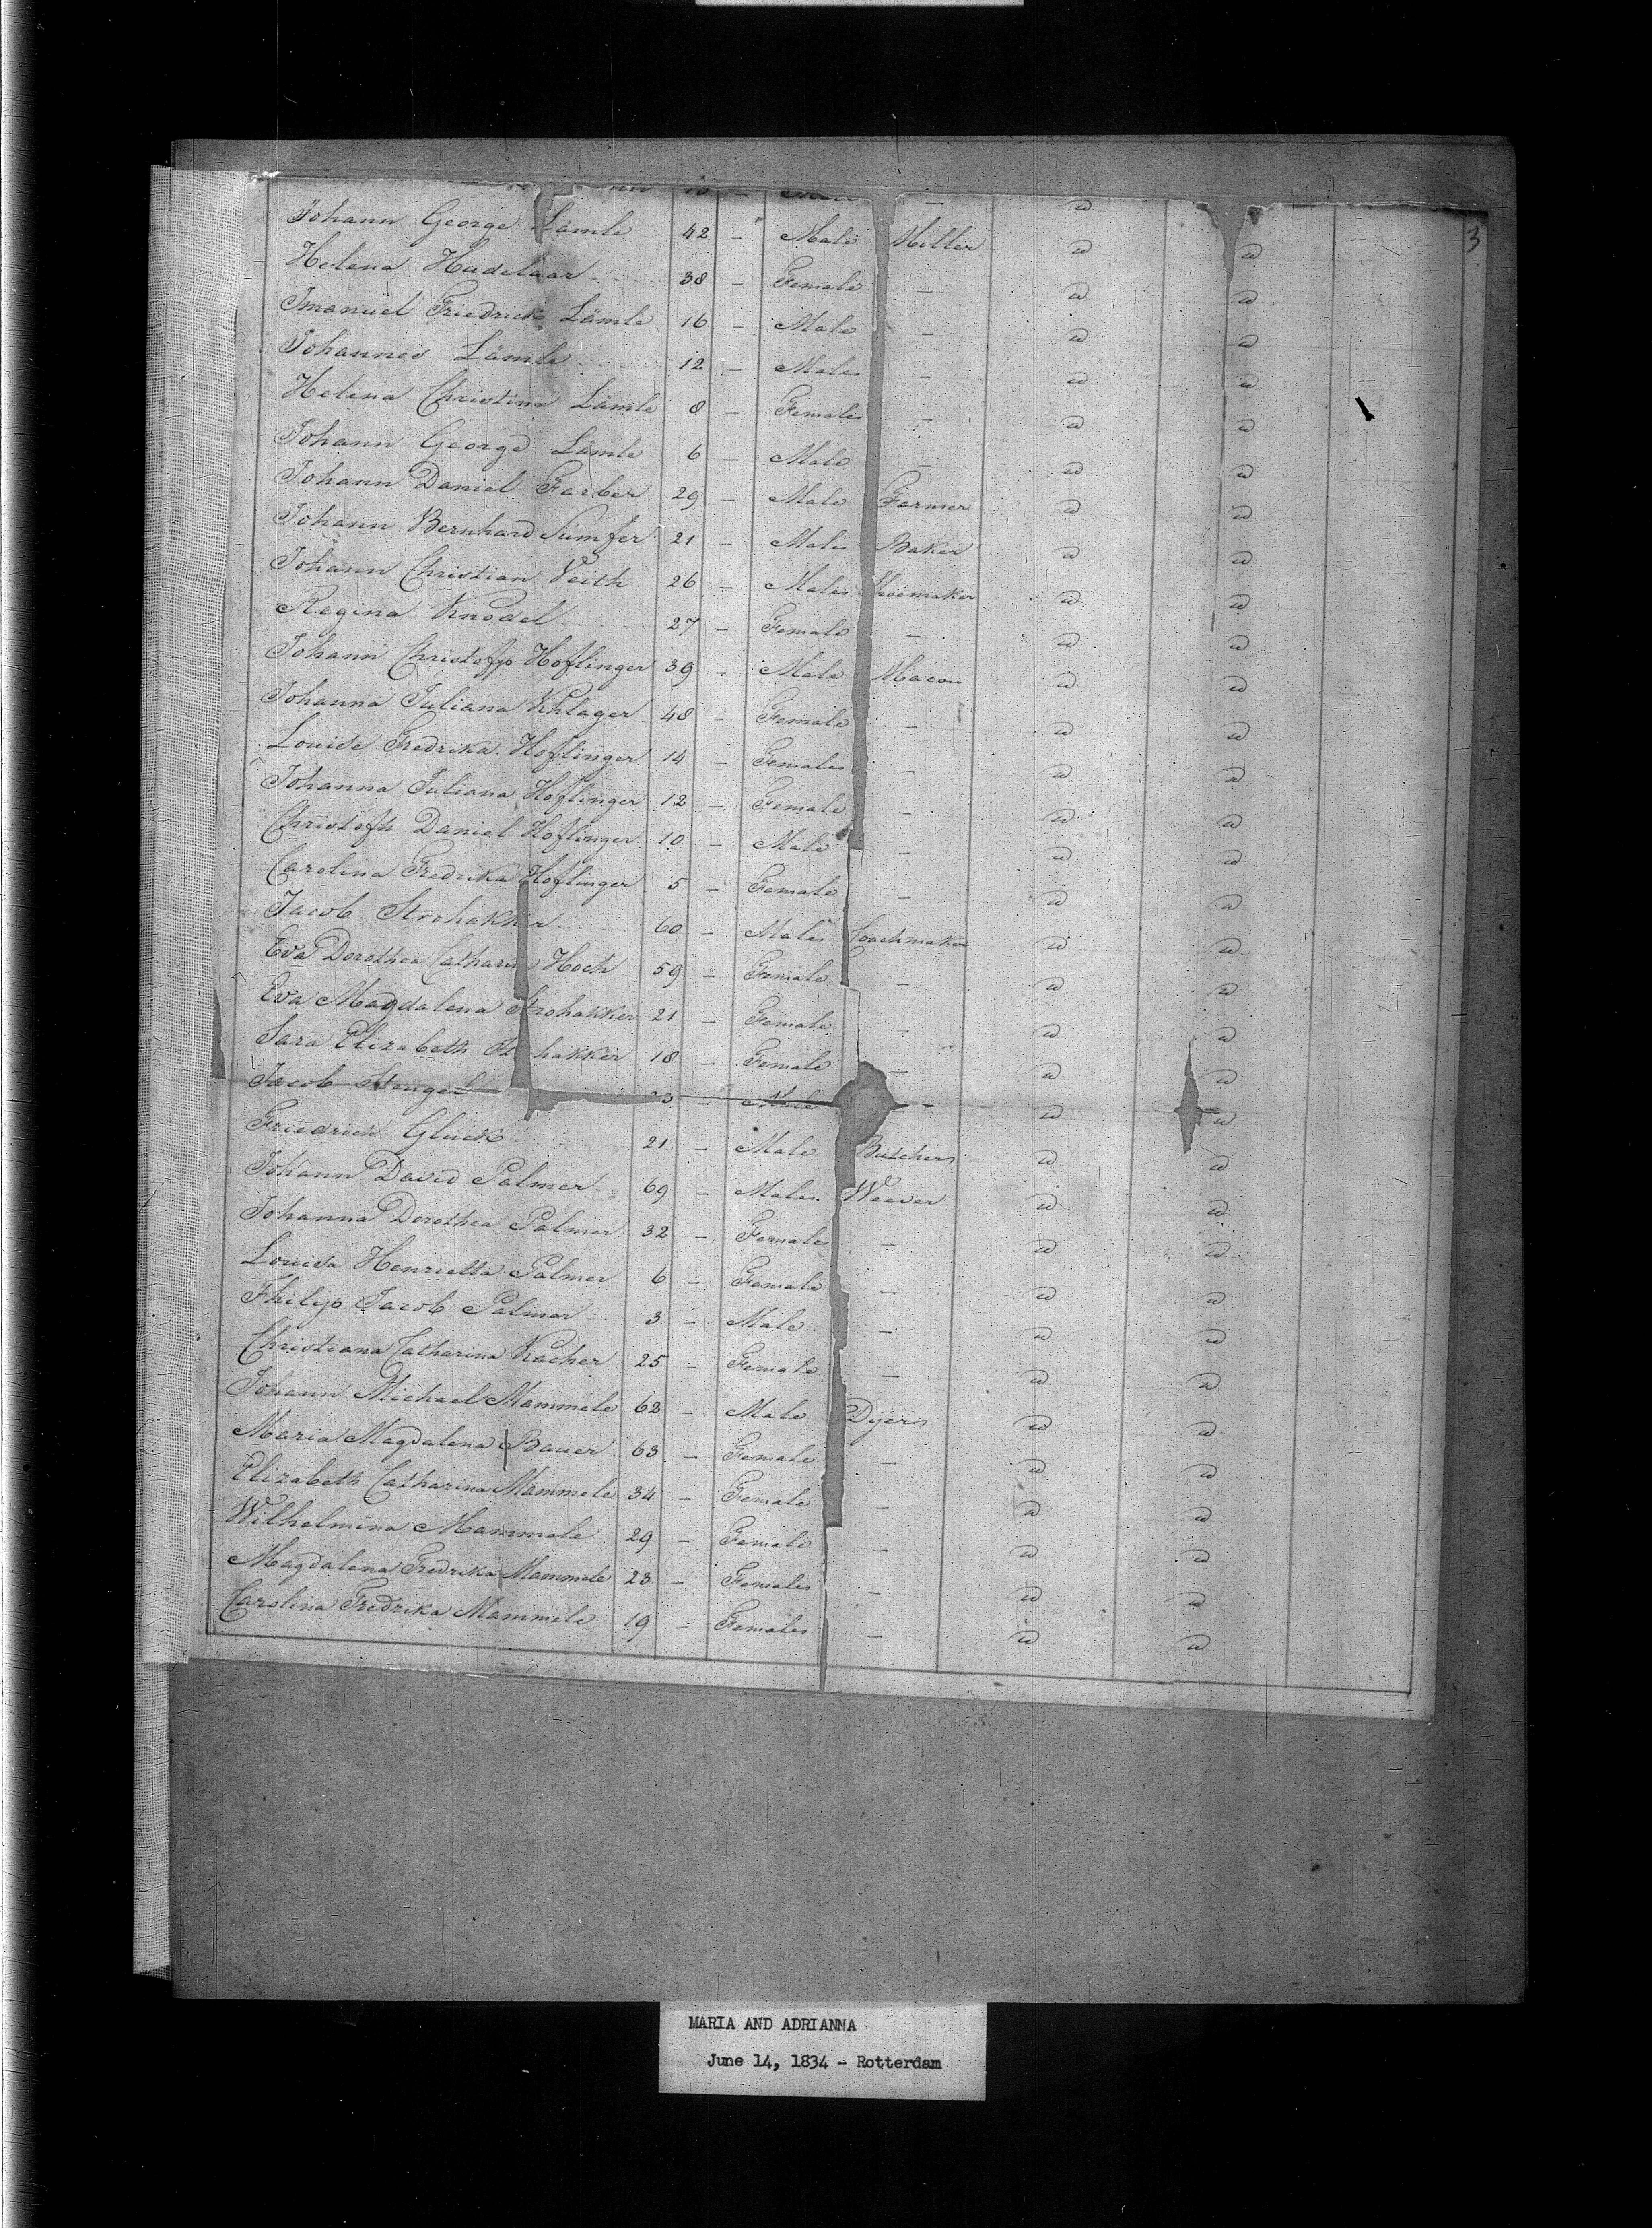 3
Johann George Lämle 42 - Male Miller " "
Helena Hudelaar 38 - Female - " "
Imanuel Friedrick Lämle 16 - Male - " "
Johannes Lämle 12 - Male - " "
Helena Christina Lämle 8 - Female - " "
Johann George Lämle 6 - Male - " "
Johann Daniel Farber 29 - Male Farmer " "
Johann Bernhard Sumfer 21 - Male Baker " "
Johann Christian Veith 26 - Male Shoemaker " "
Regina Knodel 27 - Female - " "
Johann Christofp Hoflinger 39 - Male Macon " "
Johanna Juliana Khlager 48 - Female - " "
Louise Fredrika Hoflinger 14 - Female - " "
Johanna Juliana Hoflinger 12 - Female - " "
Christofh Daniel Hoflinger 10 - Male - " "
Carolina Fredrika Hoflinger 5 - Female - " "
Jacob Strohakker 60 - Male Coachmaker " "
Eva Dorothea Catharina Hoch 59 - Female - " "
Eva Magdalena Strohakker 21 - Female - " "
Sara Elizabeth Strohakker 18 - Female - " "
Jacob Stengel - Male - " "
Friedrich Gluck 21 - Male Butcher " "
Johann David Palmer 69 - Male Weever " "
Johanna Dorothea Palmer 32 - Female - " "
Louisa Henrietta Palmer 6 - Female - " "
Philip Jacob Palmer 3 - Male - " "
Christiana Catharina Kacher 25 - Female - " "
Johann Michael Mammele 62 - Male Dijer " "
Maria Magdalena Bauer 63 - Female - " "
Elizabeth Catharina Mammele 34 - Female - " "
Wilhelmina Mammele 29 - Female - " "
Magdalena Fredrika Mammele 23 - Female - " "
Carolina Fredrika Mammele 19 - Female - " "
MARIA AND ADRIANNA
June 14, 1834 - Rotterdam